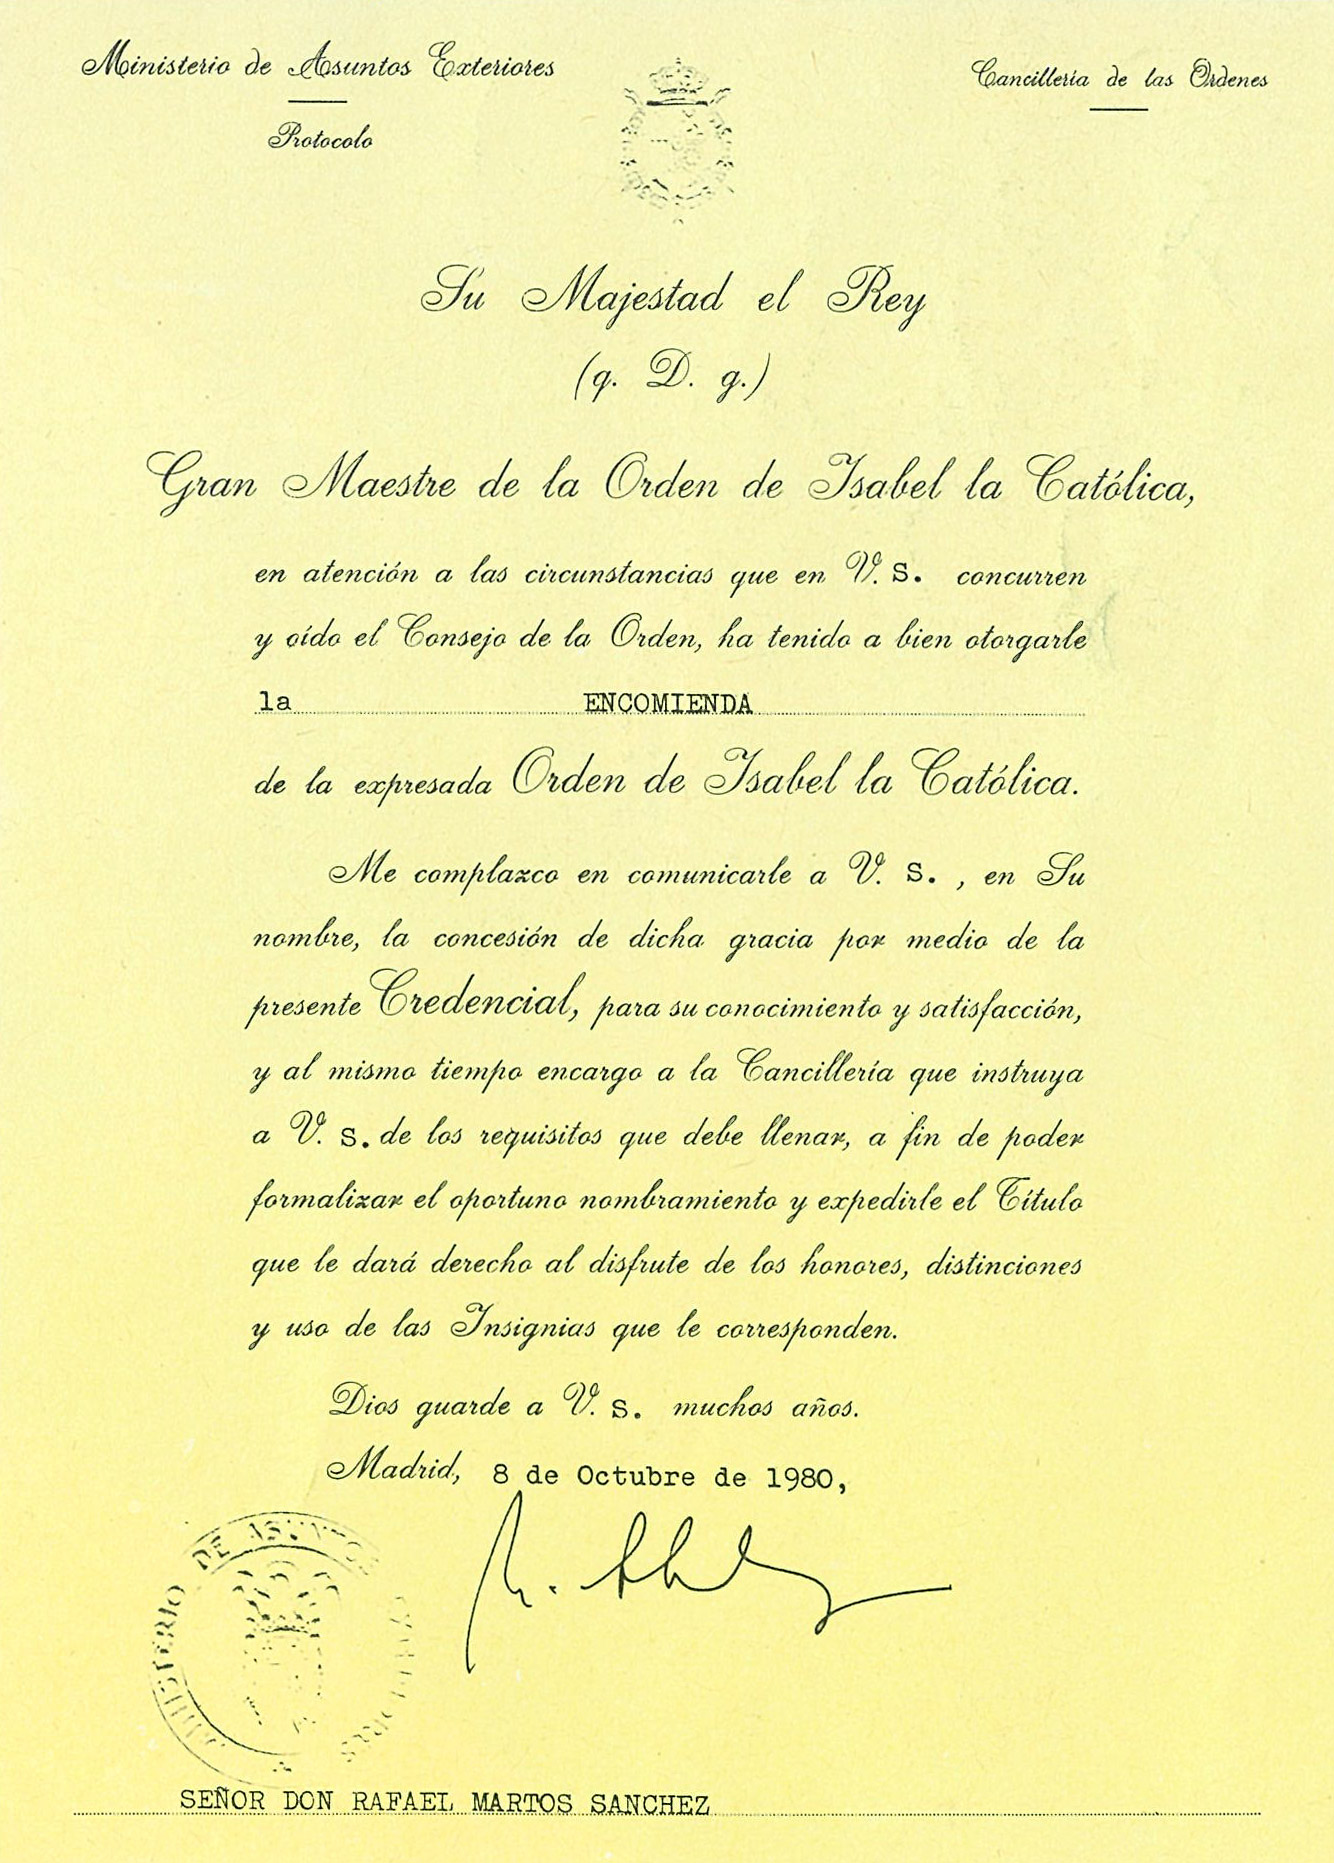 Ministerio de Asuntos Exteriores
Protocolo
Cancillería de las Ordenes
Su Majestad el Rey
(q. D. g.)
Gran Maestre de la Orden de Isabel la Católica,
en atención a las circunstancias que en V. S. concurren
y oído el Consejo de la Orden, ha tenido a bien otorgarle
la ENCOMIENDA
de la expresada Orden de Isabel la Católica.
Me complazco en comunicarle a V. S. , en Su
nombre, la concesión de dicha gracia por medio de la
presente Credencial, para su conocimiento y satisfacción,
y al mismo tiempo encargo a la Cancillería que instruya
a V. S. de los requisitos que debe llenar, a fin de poder
formalizar el oportuno nombramiento y expedirle el Título
que le dará derecho al disfrute de los honores, distinciones
y uso de las Insignias que le corresponden.
Dios guarde a V. S. muchos años.
Madrid, 8 de Octubre de 1980,
MINISTERIO DE ASUNTOS EXTERIORES
SEÑOR DON RAFAEL MARTOS SANCHEZ